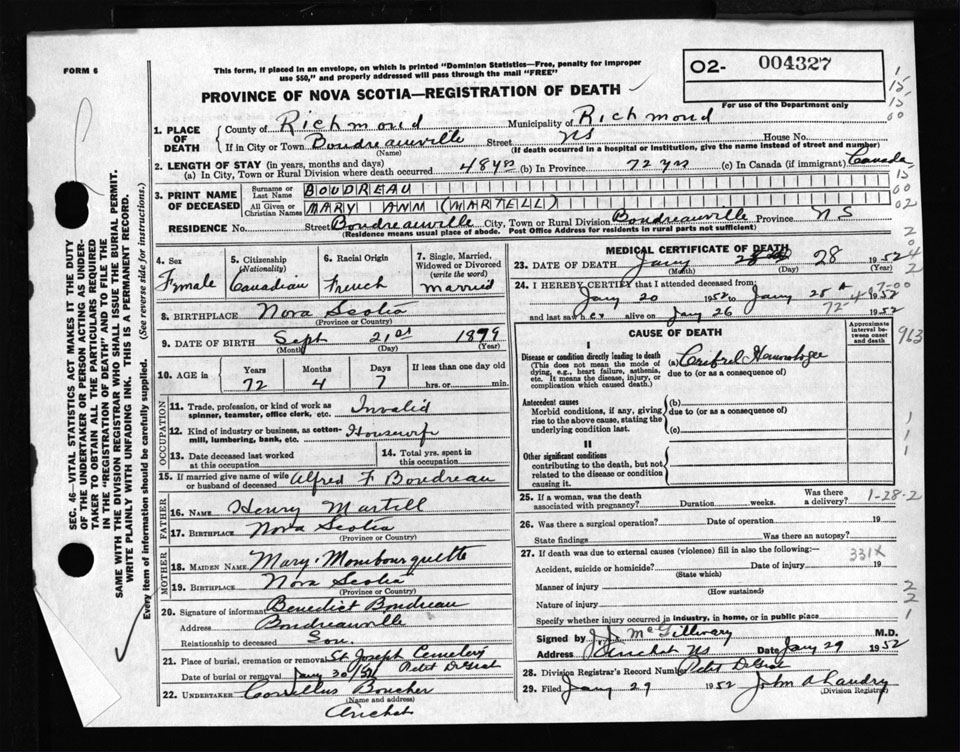 FORM 6
This form, if placed in an envelope, on which is printed "Dominion Statistics—Free, penalty for improper
use $50," and properly addressed will pass through the mail "FREE"
O2- 004327
For use of the Department only
PROVINCE OF NOVA SCOTIA—REGISTRATION OF DEATH
1. PLACE OF DEATH
County of Richmond Municipality of Richmond
If in City or Town Boudreauville Street NS House No.
(Name) (If death occurred in a hospital or institution, give the name instead of street and number)
2. LENGTH OF STAY (in years, months and days)
(a) In City, Town or Rural Division where death occurred 48 yrs (b) In Province 72 yrs (c) In Canada (if immigrant) Canada
3. PRINT NAME OF DECEASED
Surname or Last Name BOUDREAU
All Given or Christian Names MARY ANN (MARTELL)
RESIDENCE No. Street Boudreauville City, Town or Rural Division Boudreauville Province NS
(Residence means usual place of abode. Post Office Address for residents in rural parts not sufficient)
4. Sex
Female
5. Citizenship
(Nationality)
Canadian
6. Racial Origin
French
7. Single, Married, Widowed or Divorced
(write the word)
married
8. BIRTHPLACE Nova Scotia
(Province or Country)
9. DATE OF BIRTH Sept 21st 1879
(Month) (Day) (Year)
10. AGE in
Years 72
Months 4
Days 7
If less than one day old
hrs. or min.
OCCUPATION
11. Trade, profession, or kind of work as spinner, teamster, office clerk, etc. Invalid
12. Kind of industry or business, as cotton-mill, lumbering, bank, etc. Housewife
13. Date deceased last worked at this occupation
14. Total yrs. spent in this occupation
15. If married give name of wife or husband of deceased Alfred F Boudreau
FATHER
16. NAME Henry Martell
17. BIRTHPLACE Nova Scotia
(Province or Country)
MOTHER
18. MAIDEN NAME Mary Mombourquette
19. BIRTHPLACE Nova Scotia
(Province or Country)
20. Signature of informant Benedict Boudreau
Address Boudreauville
Relationship to deceased Son
21. Place of burial, cremation or removal St Joseph Cemetery
Date of burial or removal Jany 30/52 Petit DeGrat
22. UNDERTAKER Boucher
(Name and address)
Arichat
MEDICAL CERTIFICATE OF DEATH
23. DATE OF DEATH Jany 28 1952
(Month) (Day) (Year)
24. I HEREBY CERTIFY that I attended deceased from:
Jany 20 1952 to Jany 1952
and last saw her alive on Jany 26 1952
CAUSE OF DEATH
Approximate interval between onset and death
I
Disease or condition directly leading to death
(This does not mean the mode of dying, e.g., heart failure, asthenia, etc. It means the disease, injury, or complication which caused death.)
(a) Cerebral Hemorrhage
due to (or as a consequence of)
Antecedent causes
Morbid conditions, if any, giving rise to the above cause, stating the underlying condition last.
(b)
due to (or as a consequence of)
(c)
II
Other significant conditions
contributing to the death, but not related to the disease or condition causing it.
25. If a woman, was the death associated with pregnancy? Duration weeks. Was there a delivery? 1-28-2
26. Was there a surgical operation? Date of operation 19
State findings Was there an autopsy?
27. If death was due to external causes (violence) fill in also the following:— 331X
Accident, suicide or homicide? Date of injury 19
(State which)
Manner of injury
(How sustained)
Nature of injury
Specify whether injury occurred in industry, in home, or in public place
Signed by McGillivary M.D.
Address Arichat NS Date Jany 29 1952
28. Division Registrar's Record Number Petit DeGrat
29. Filed Jany 29 1952 John A Landry
(Division Registrar)
963
SEC. 46—VITAL STATISTICS ACT MAKES IT THE DUTY
OF THE UNDERTAKER OR PERSON ACTING AS UNDER-
TAKER TO OBTAIN ALL THE PARTICULARS REQUIRED
IN THE "REGISTRATION OF DEATH" AND TO FILE THE
SAME WITH THE DIVISION REGISTRAR WHO SHALL ISSUE THE BURIAL PERMIT.
WRITE PLAINLY WITH UNFADING INK. THIS IS A PERMANENT RECORD.
Every item of information should be carefully supplied. (See reverse side for instructions.)